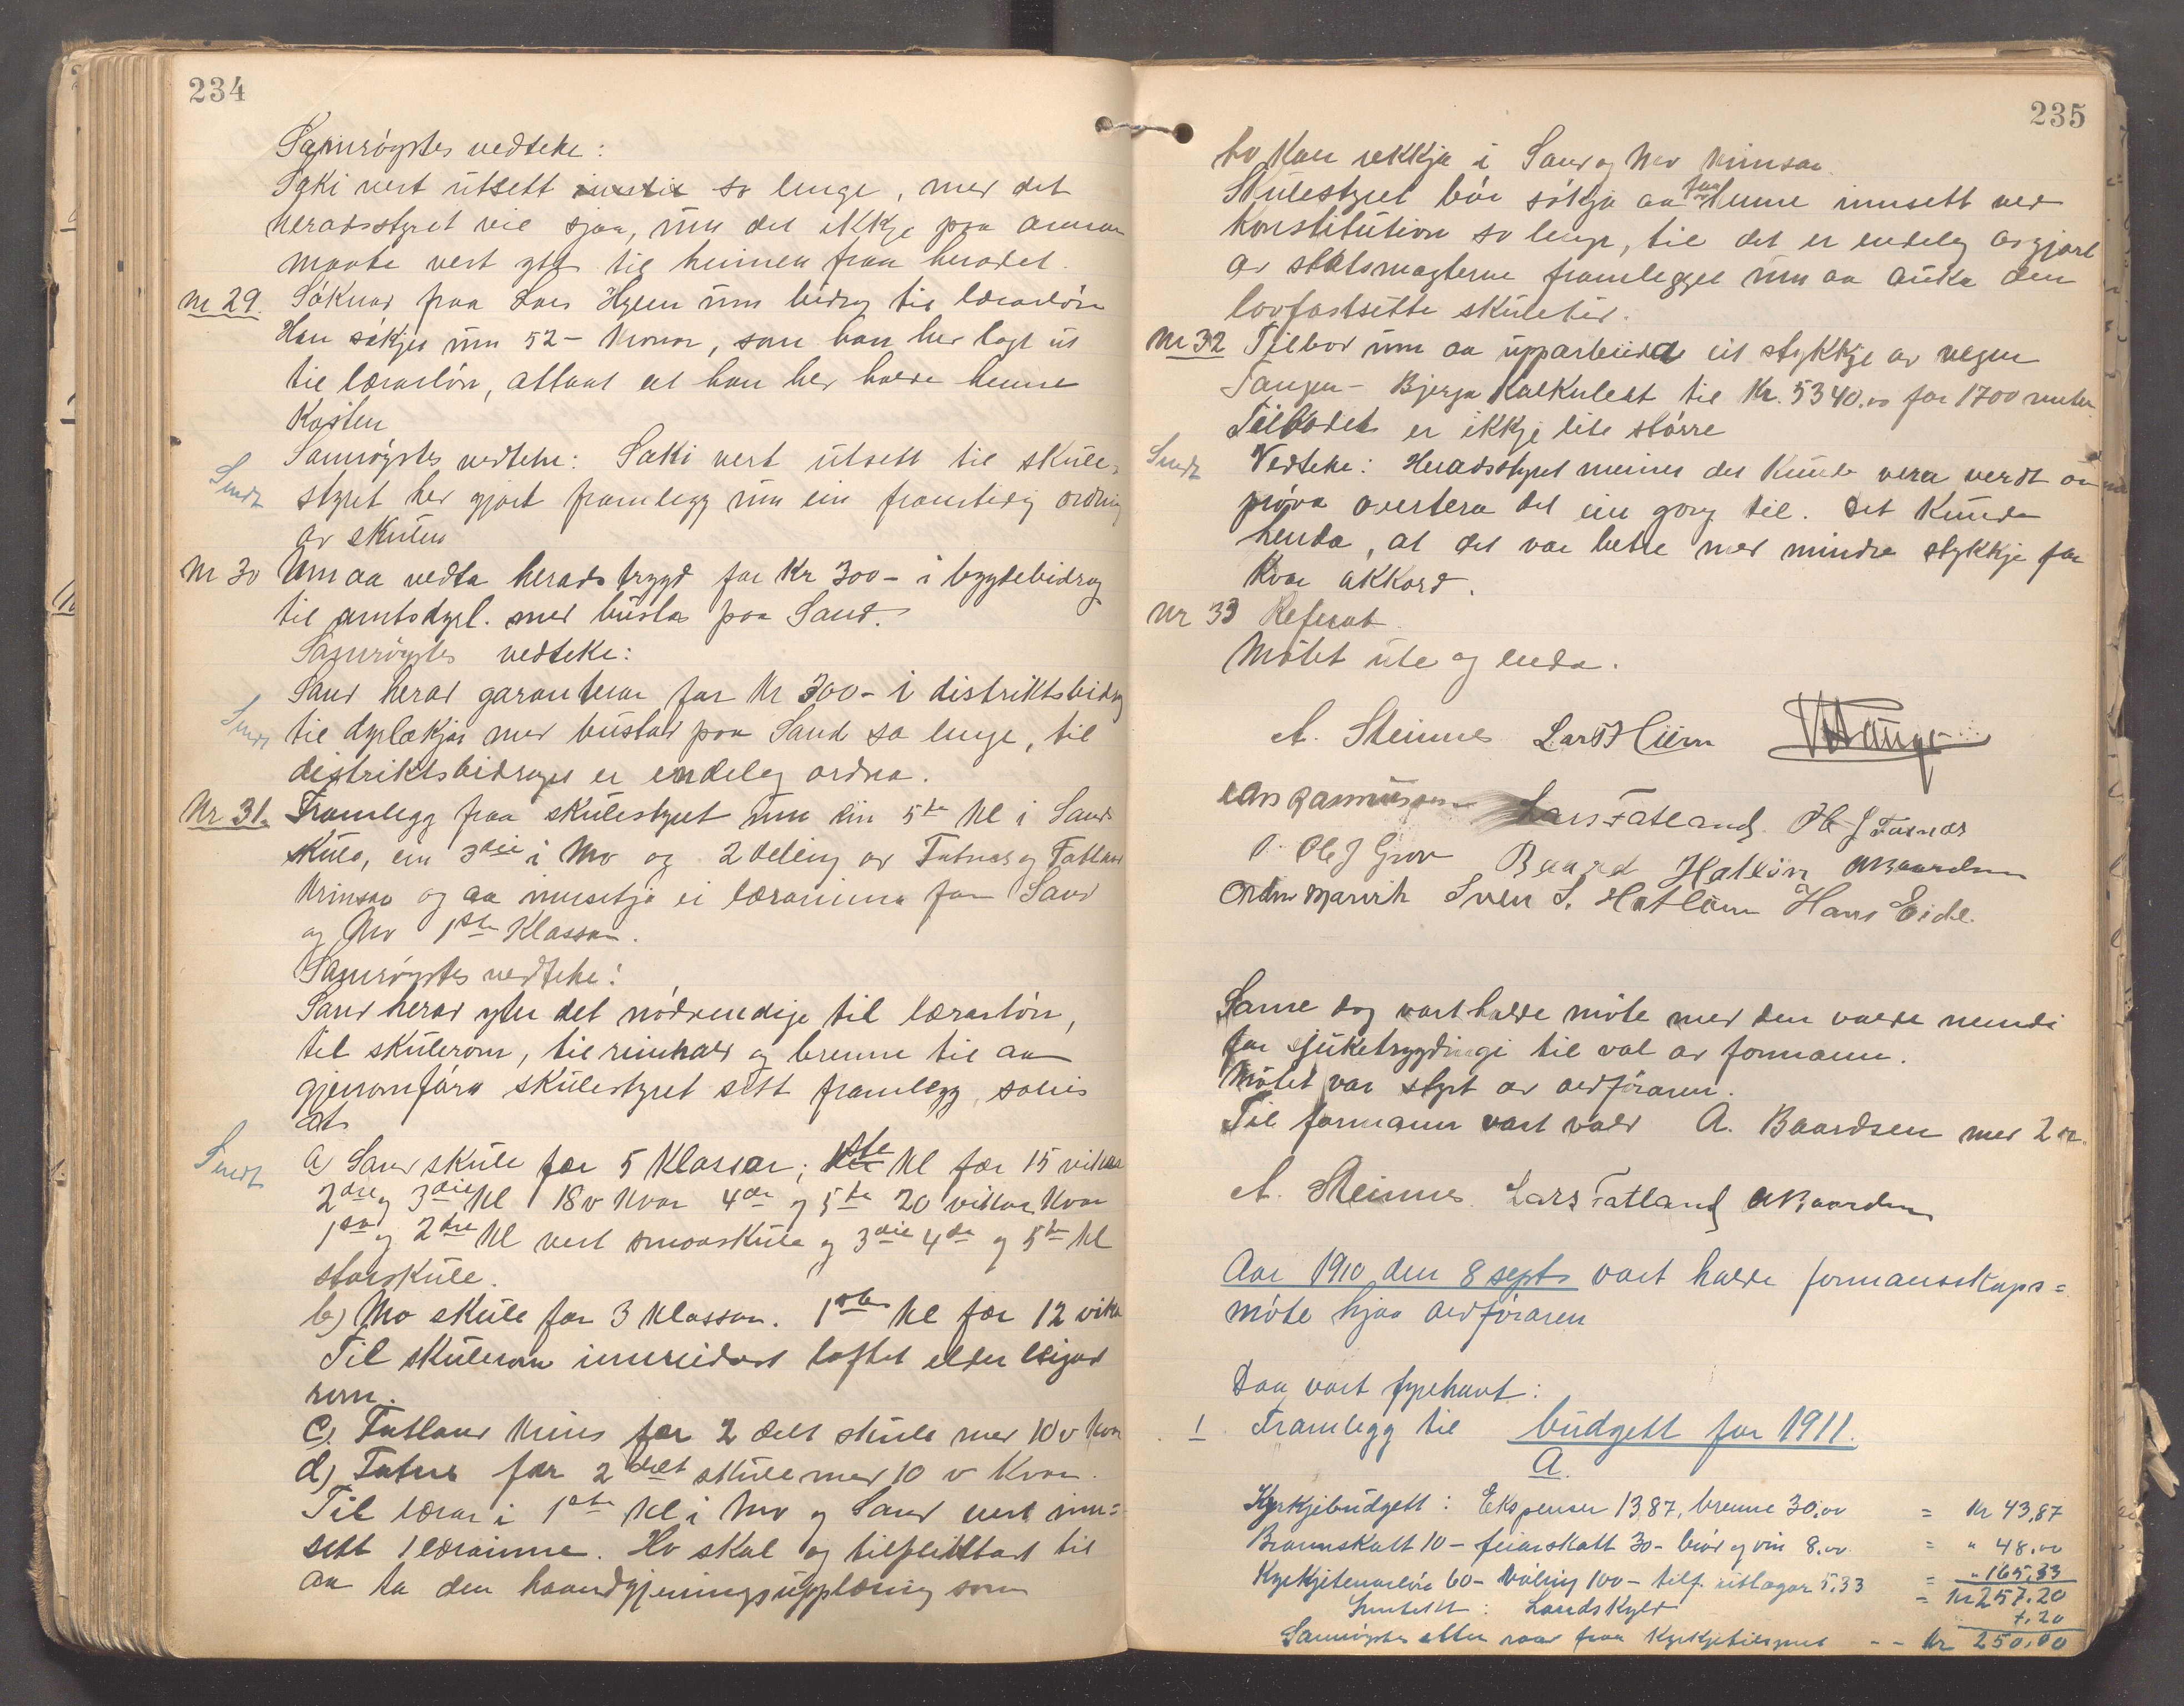 234
Samrøystes vedteke:
Saki vert utsett so lenge, med det
heradsstyret vil sjaa, um det ikkje paa annan
maate vert ytt til heimen fraa heradet.
Nr 29. Søknad fraa Lars Hylen um bidrag til lærarløn
Han søkjer um 52 - kronor, som han her lagt ut
til lærarløn, attaat at han her halde henne
Kosten
Samrøystes vedteke: Saki vert utsett til skule-
Sendt styret her gjort framlegg um ein framtidig ordning
av skulen
Nr 30 Um aa vedta heradstrygd for Kr 300 - i bygdebidrag
til amtsdyrl. med bustad paa Sand.
Samrøystes vedteke:
Sand herad garanterar for Kr 300 - i distriktsbidrag
Sendt til dyrlækjar med bustad paa Sand so lenge, til
distriktsbidraget er endeleg ordna.
Nr. 31. Framlegg fraa skulestyret um ein 5te kl i Sand
skule, ein 3die i Mo og 2 deling av Fatnes og Fatland
krinsar og aa innsetja ei lærarinna for Sand
og Mo 1ste Klassar.
Samrøystes vedteke:
Sand herad yter det nødvendige til lærarløn,
til skulerom, til reinhald og brenne til aa
gjenomføra skulestyret sitt framlegg, soleis
at
Sendt a) Sand skule fær 5 Klassar; 1ste kl fær 15 vikur
2dre og 3die kl 18 v kvar 4de og 5te 20 vikur kvar
1ste og 2dre kl vert smaaskule og 3die 4de og 5te kl
storskule.
b) Mo skule fær 3 klassar. 1ste kl fær 12 vikur
Til skulerom innreidast loftet elder leigast
rom.
c). Fatland krins fær 2 delt skule med 10 v kvar
d) Fatnes fær 2 delt skule med 10 v kvar.
Til lærar i 1ste kl i Mo og Sand vert inn=
sett 1 lærarinne. Ho skal og tilpliktast til
aa ta den haandgjerningsupplæring som
235
ho kan rekkja i Sand og Mo krinsar.
Skulestyret bør søkja aa faa henne innsett ved
Konstitution so lenge, til det er endeleg avgjort
av statsmagterne framlegget um aa auka den
lovfastsette skuletid.
Nr 32 Tilbod um aa upparbeida eit stykkje av vegen
Tangen - Bjerga kalkulert til Kr. 5340.00 for 1700 meter
Tilbodet er ikkje lite større
Sendt Vedteke: Heradsstyret meiner det kunde vera verdt aa
prøva avertera det ein gong til. Det kunde
henda, at det var betre med mindre stykkje for
kvar akkord.
Nr 33 Referat.
Møtet ute og enda.
A. Steinnes Lars Hiim
Lars Rasmussen Lars Fatland
Ole J Grov Baard Hatløin ABaardsen
Sven S. Hatløin Hans Eide.
Same dag vart halde møte med den valde nemdi
for sjuketrygdingi til val av formann.
Møtet var styrt av ordføraren.
Til formann vart vald A. Baardsen med 2 r.
A. Steinnes. Lars Fatland ABaardsen
Aar 1910 den 8 septb vart halde formannskaps=
møte hjaa ordføraren
Daa vart fyrehavt:
1. Framlegg til budgett for 1911.
A.
Kyrkjebudgett: Ekspenser 13,87, brenne 30,00 = Kr 43,87
Brannskatt 10 - feiarskatt 30 - brød og vin 8.00 = " 48.00
Kyrkjetenarløn 60 - vøling 100 - tilf. utlagor 5,33 = " 165,33
= Kr 257.20
Inntekt: Landskyld 7.20
Samrøystes etter raad fraa Kyrkjetilsynet - - Kr 250,00